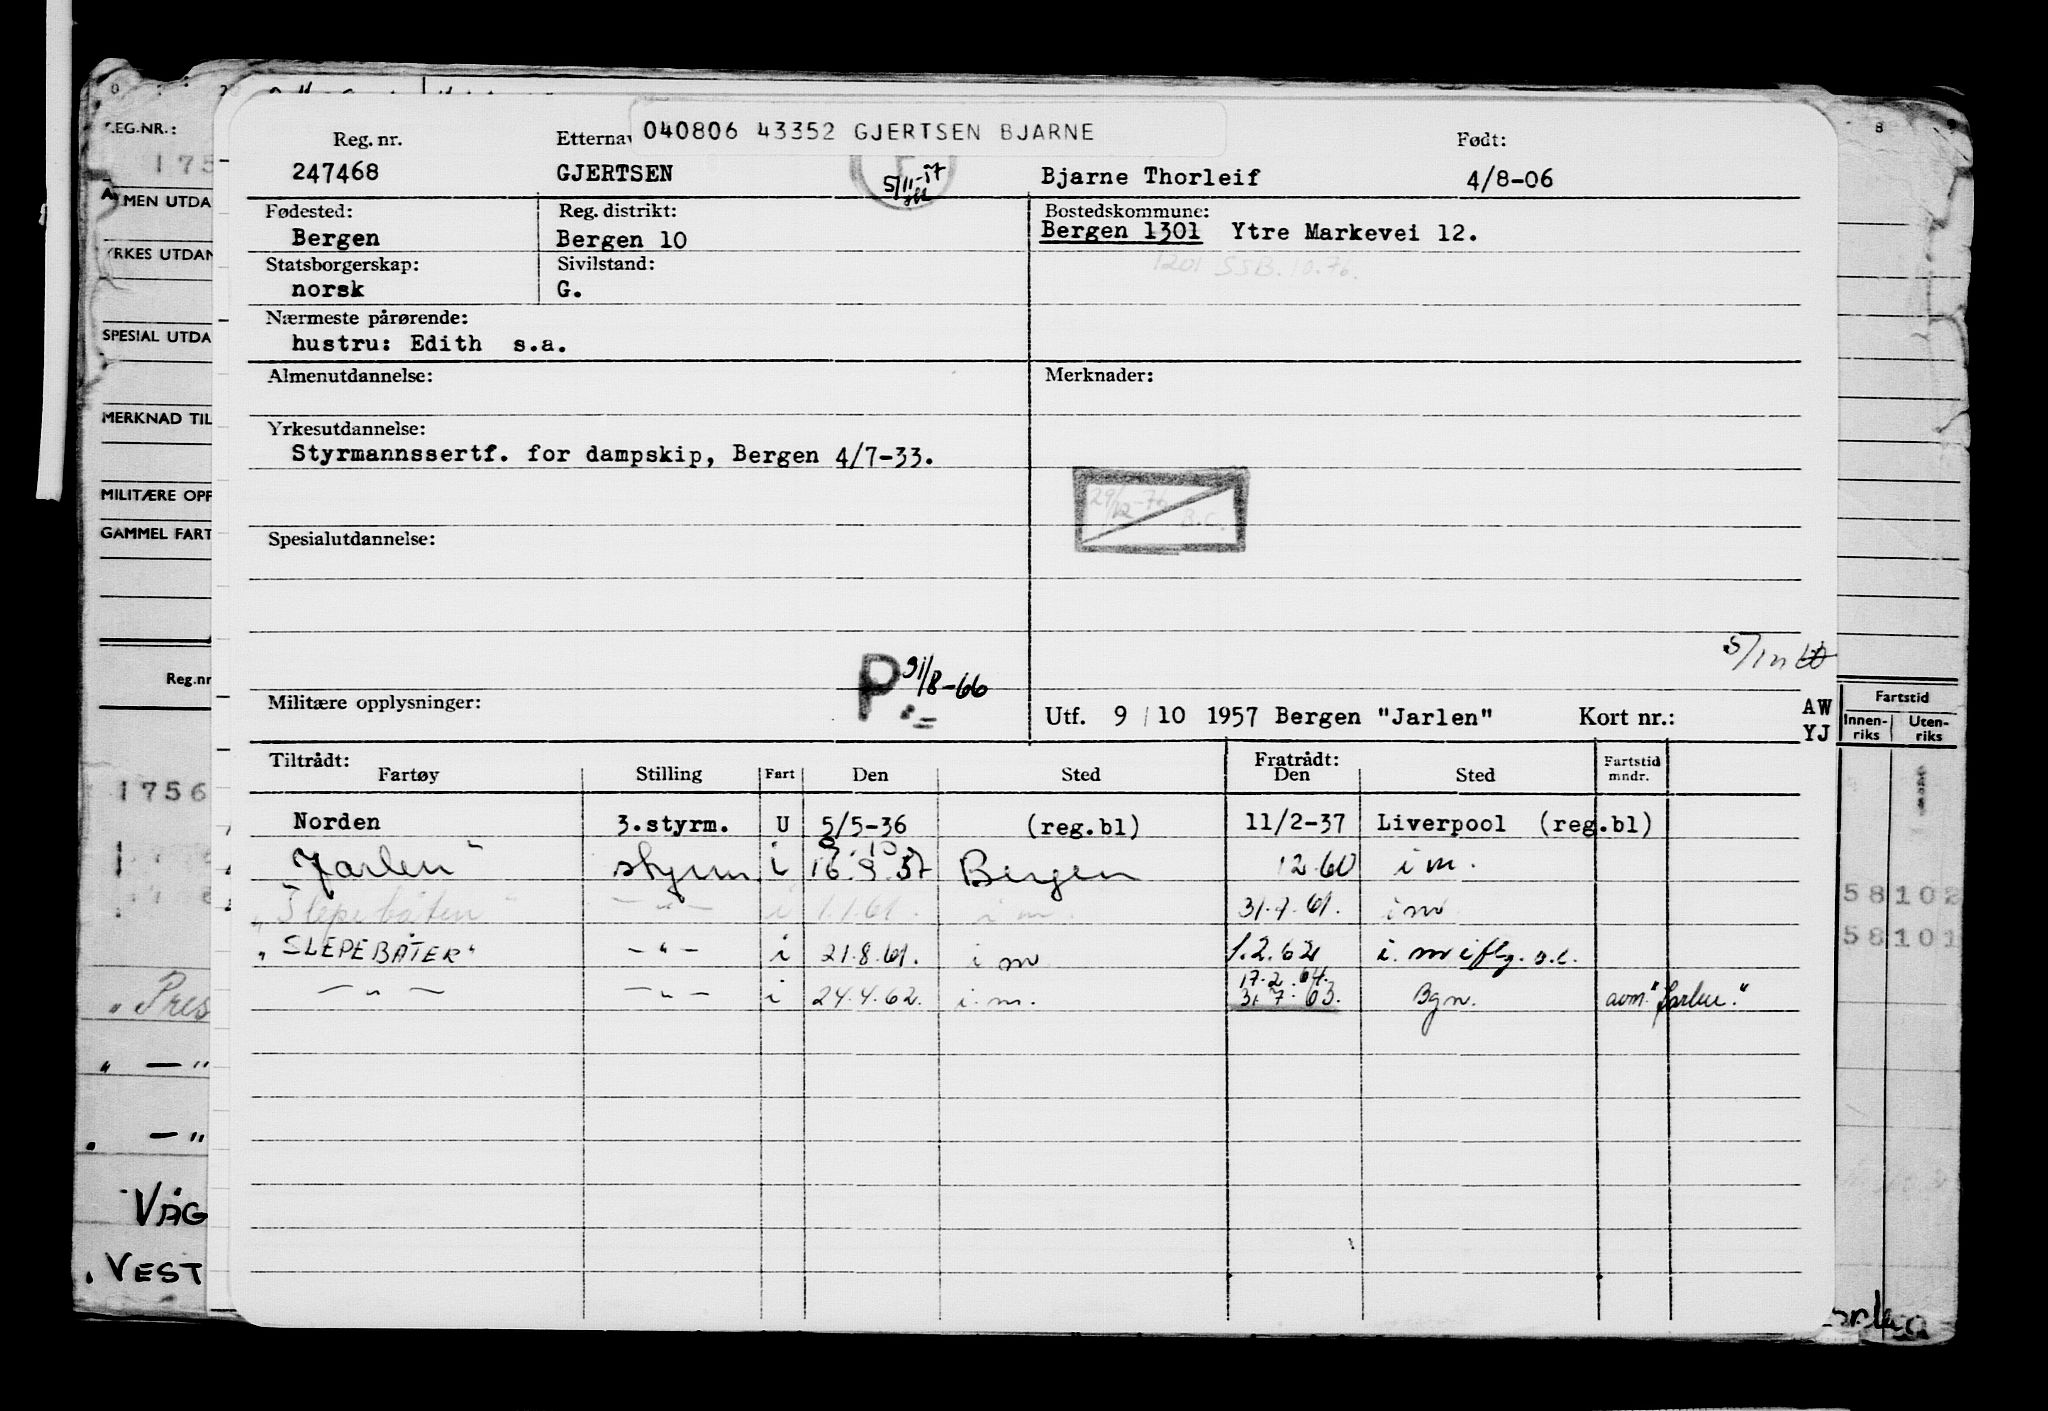 040806 43352 GJERTSEN BJARNE
Reg. nr. Etternav Født:
247468 GJERTSEN Bjarne Thorleif 4/8-06
Fødested: Reg. distrikt: Bostedskommune:
Bergen Bergen 10 Bergen 1301 Ytre Markevei 12.
1201 SSB. 10.76.
Statsborgerskap: Sivilstand:
norsk G.
Nærmeste pårørende:
hustru: Edith s.a.
Almenutdannelse: Merknader:
Yrkesutdannelse:
Styrmannssertf. for dampskip, Bergen 4/7-33.
29/12-76 B.C.
Spesialutdannelse:
P 31/8-66
Militære opplysninger: Utf. 9/10 1957 Bergen "Jarlen" Kort nr.: AW
YJ
Tiltrådt: Fratrådt: Fartstid
Fartøy Stilling Fart Den Sted Den Sted mndr.
Norden 3.styrm. U 5/5-36 (reg.bl) 11/2-37 Liverpool (reg.bl)
Jarlen" styrm. i 16.9.57 Bergen 12.60 i m.
"Slepebåten" -"- i 1.1.61. i m. 31.7.61. i m
"SLEPEBÅTER" -"- i 21.8.61. i m 1.2.62 i. m iflg. o.c.
17.2.64.
-"- -"- i 24.4.62. i.m. 31.7.63. Bgn. avm. "Jarlen."
REG.NR.:
175
ALMEN UTDA
YRKES UTDAN
SPESIAL UTDA
MERKNAD TIL
MILITÆRE OPP
GAMMEL FART
Reg.nr
1756
"Pres
" — "
" — "
VÅG
VEST
8
Fartstid
Innen-riks Uten-riks
58102
58101